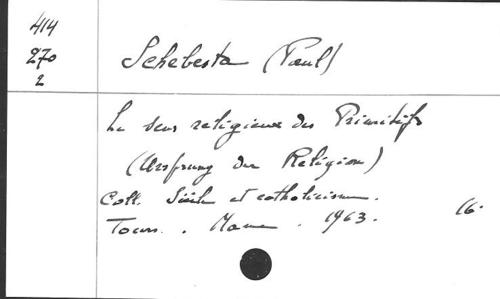 414
270
2
Schebesta (Paul)
Le sens religieux des Primitifs
(Ursprung der Religion)
Coll. Siècle et catholicisme.
Tours. Mame. 1963. 16.